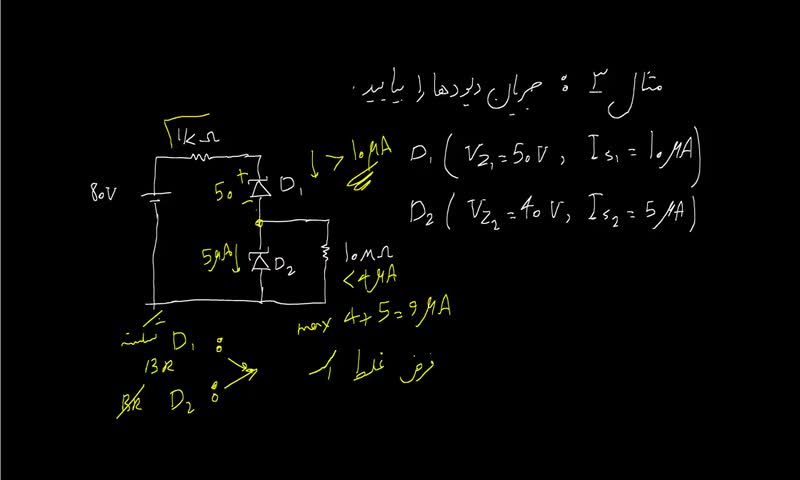 مثال ۳ : جریان دیودها را بیابید.
D₁ ( V_Z₁ = 50 V , I_S₁ = 10 μA )
D₂ ( V_Z₂ = 40 V , I_S₂ = 5 μA )
1KΩ
80V
50
+
-
D₁
> 10 μA
5μA
D₂
10MΩ
< 4μA
max 4+5=9μA
شکست D₁ :
BR
BR D₂ :
فرض غلط